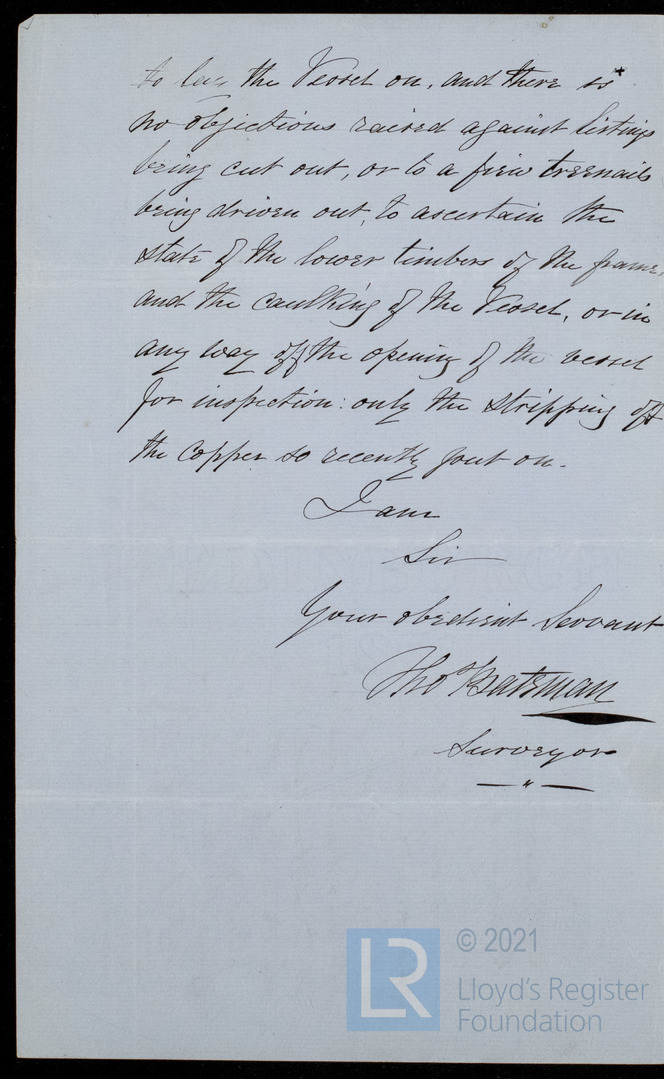 to lay the Vessel on, and there is
no objections raised against listings
being cut out, or to a few treenails
being driven out, to ascertain the
state of the lower timbers of the frame,
and the caulking of the Vessel, or in
any way off the opening of the vessel
for inspection: only the stripping off
the copper so recently put on.
I am
Sir
Your obedient Servant
Tho^s Bateman
Surveyor
LR
© 2021
Lloyd's Register
Foundation